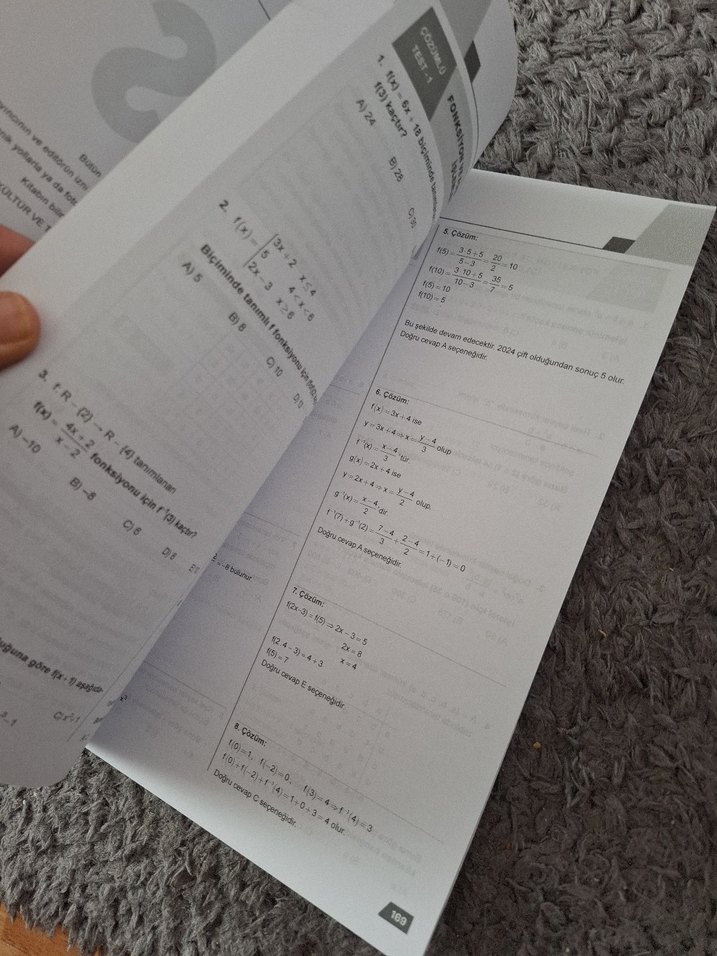 Bütün
yıncının ve editörün izni
nik yollarla ya da foto
Kitabın bilim
KÜLTÜR VE T
ÇÖZÜMLÜ
TEST - 1
FONKSİYON
1. f(x) = 6x + 18 biçiminde tanımlanan
f(3) kaçtır?
A) 24 B) 28 C) 30
2. f(x) = { 3x + 2 x ≤ 4
5 4 < x < 6
2x - 3 x ≥ 6
Biçiminde tanımlı f fonksiyonu için
A) 5 B) 8 C) 10
3. f: R - {2} → R - {4} tanımlanan
f(x) = (4x + 2)/(x - 2) fonksiyonu için f⁻¹(3) kaçtır?
A) -10 B) -8 C) 6 D) 8
uğuna göre f(x - 1) aşağıda
= -8 bulunur.
5. Çözüm:
f(5) = (3·5+5)/(5-3) = 20/2 = 10
f(10) = (3·10+5)/(10-3) = 35/7 = 5
f(5) = 10
f(10) = 5
Bu şekilde devam edecektir. 2024 çift olduğundan sonuç 5 olur.
Doğru cevap A seçeneğidir.
6. Çözüm:
f(x) = 3x + 4 ise
y = 3x + 4 ⇒ x = (y-4)/3 olup
f⁻¹(x) = (x-4)/3 tür.
g(x) = 2x + 4 ise
y = 2x + 4 ⇒ x = (y-4)/2 olup.
g⁻¹(x) = (x-4)/2 dir.
f⁻¹(7) + g⁻¹(2) = (7-4)/3 + (2-4)/2 = 1 + (-1) = 0
Doğru cevap A seçeneğidir.
7. Çözüm:
f(2x-3) = f(5) ⇒ 2x - 3 = 5
2x = 8
x = 4
f(2·4 - 3) = 4 + 3
f(5) = 7
Doğru cevap E seçeneğidir.
8. Çözüm:
f(0) = 1, f(-2) = 0, f(3) = 4 ⇒ f⁻¹(4) = 3
f(0) + f(-2) + f⁻¹(4) = 1 + 0 + 3 = 4 olur.
Doğru cevap C seçeneğidir.
169